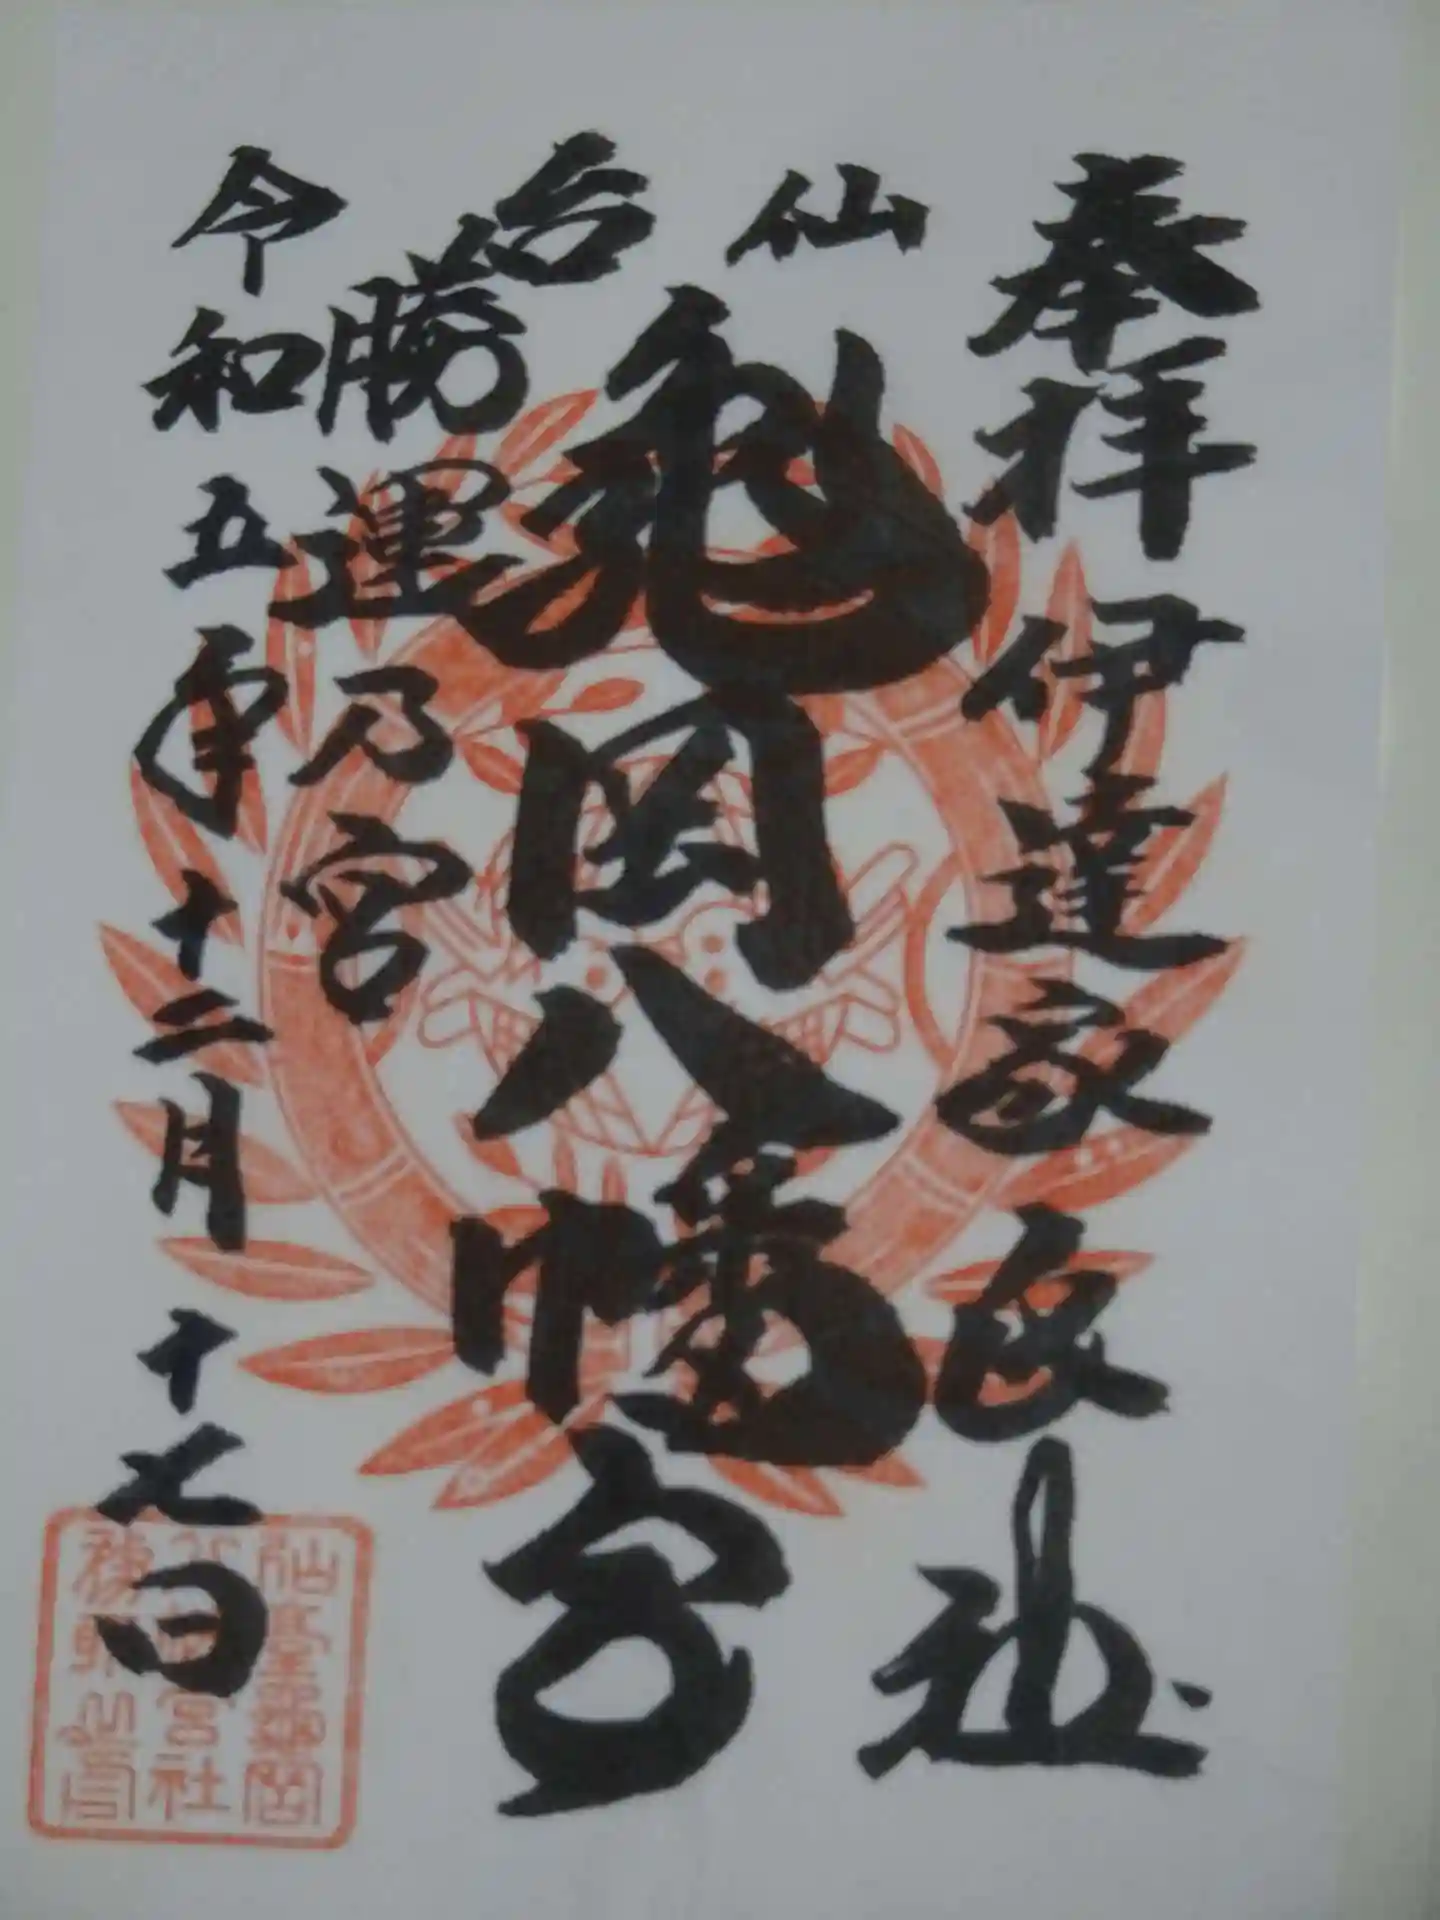 奉拝 伊達家良社
仙台
亀岡八幡宮
勝運乃宮
令和五年十二月十七日
仙臺龜岡
八幡宮社
務所之印